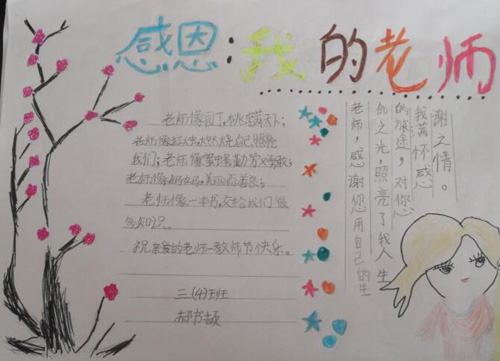 感恩:我的老师
老师像园丁,桃李满天下;
老师像 燃烧自己照亮
我们;老师像蜜蜂,勤劳又勇敢;
老师像妈妈,美丽而善良;
老师像一本书,交给我们很
多知识。
祝亲爱的老师—教师节快乐。
二(4)班
郝书
老师,感谢您用自己的生
命之光,照亮了我人生
的旅途,对您
我满怀感
谢之情。